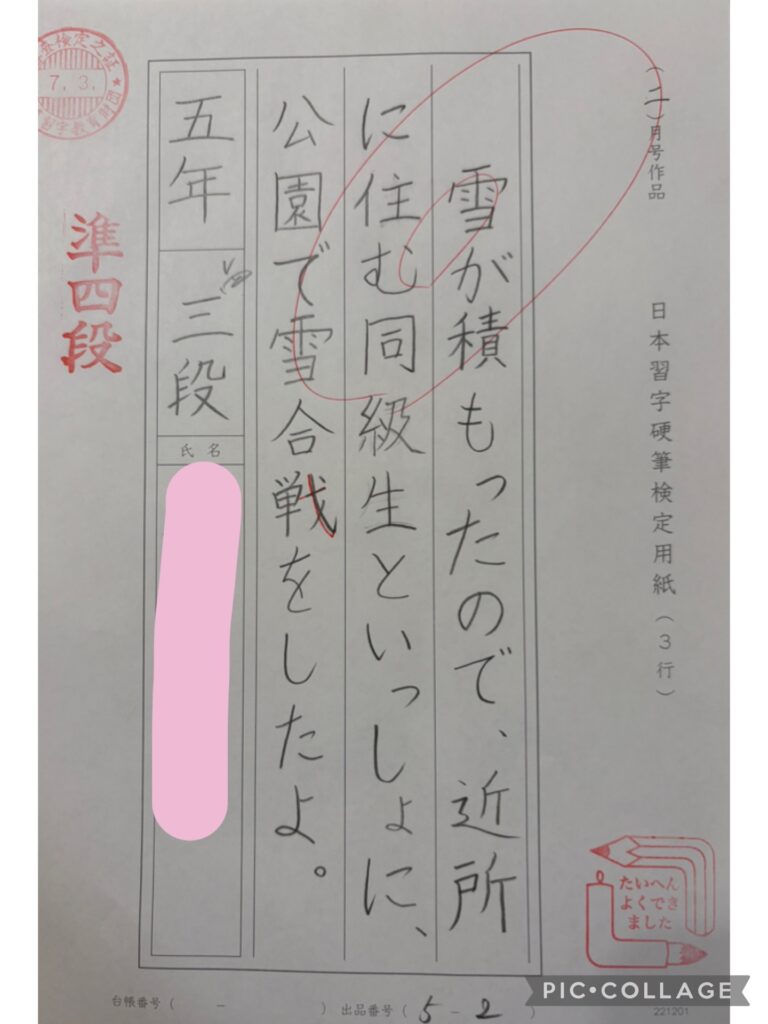 (二)月号作品
日本習字硬筆検定用紙(3行)
雪が積もったので、近所
に住む同級生といっしょに、
公園で雪合戦をしたよ。
五年
三段
氏名
準四段
7.3.
たいへん
よくでき
ました
台帳番号( - )
出品番号( 5 - 2 )
221201
PIC•COLLAGE